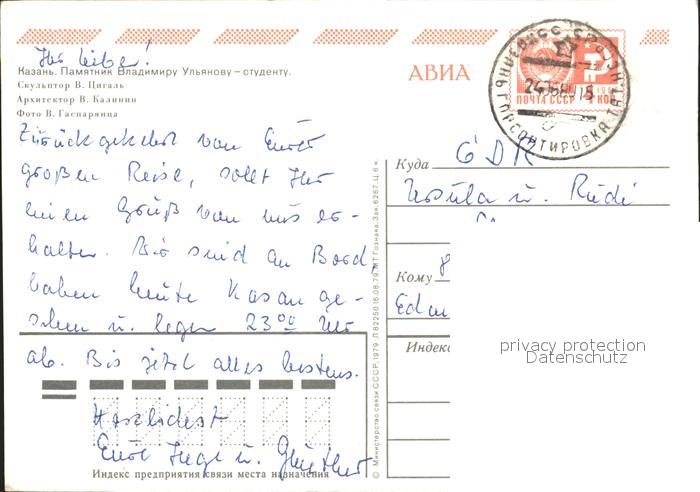 Ihr Lieben!
Казань. Памятник Владимиру Ульянову – студенту.
Скульптор В. Цигаль
Архитектор В. Калинин
Фото В. Гаспарянца
Zurückgekehrt von Eurer
großen Reise, sollt Ihr
einen Gruß von uns er-
halten. Wir sind an Bord
haben heute Kasan ge-
sehen u. legen 23⁰⁰ Uhr
ab. Bis jetzt alles bestens.
Herzlichst
Eure Inge u. Günther
Индекс предприятия связи места назначения
© Министерство связи СССР, 1979. Л 82250 16.08.79. МТ Гознака. Зак. 6267. Ц. 6 к.
АВИА
ПОЧТА СССР
Куда GDR
Ursula u. Rudi
Кому
Индекс
privacy protection
Datenschutz